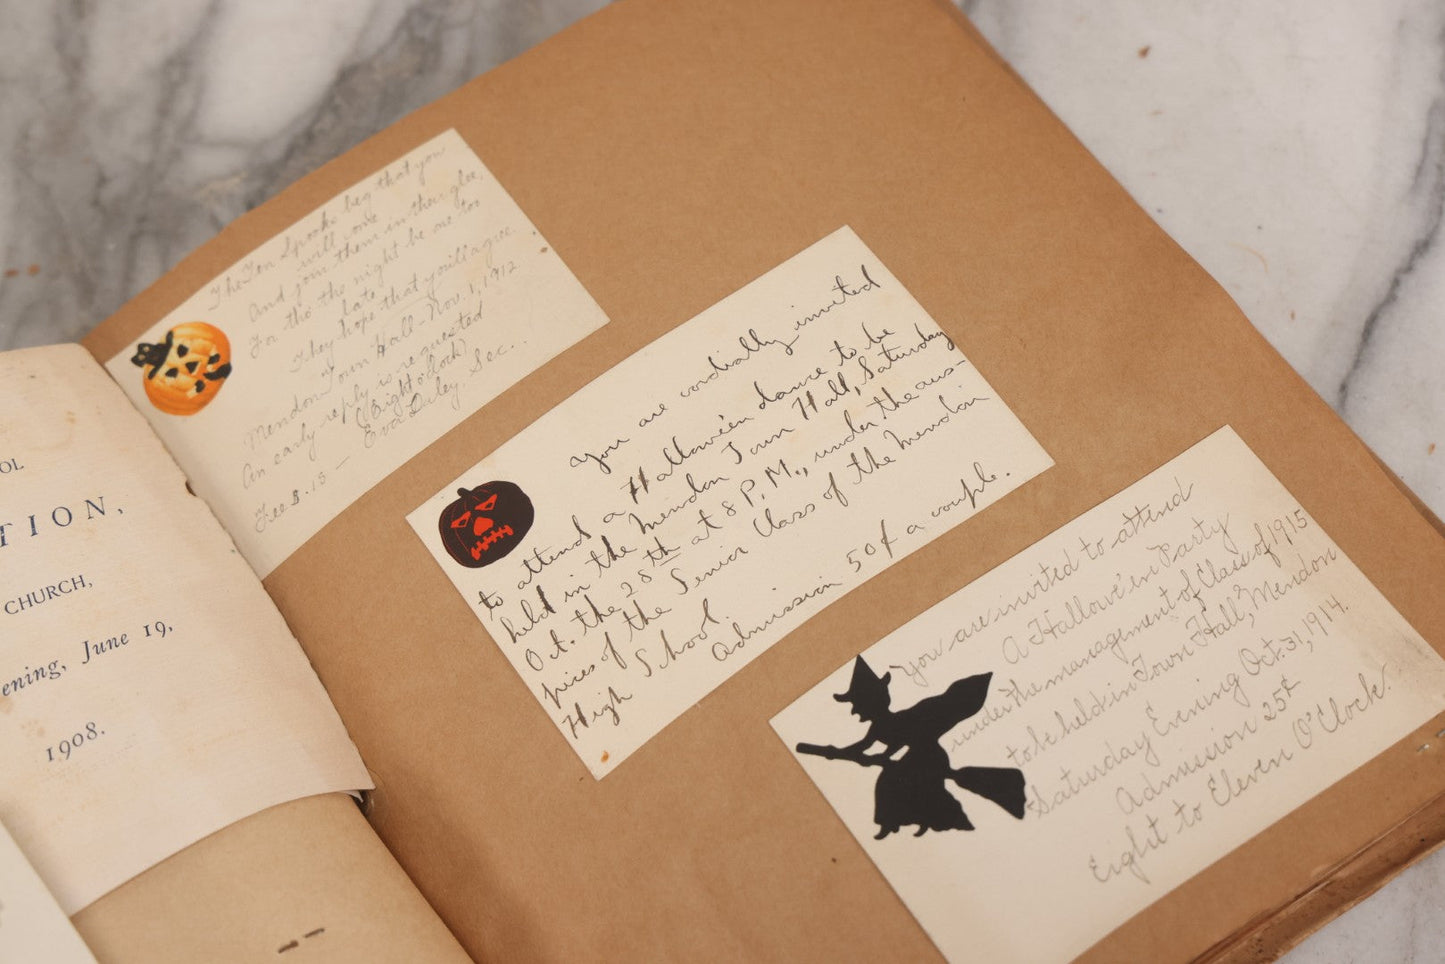 OL
TION,
CHURCH,
ening, June 19,
1908.
The Ten Spooks beg that you
will come
And join them in their glee,
For tho' the night be one too
late
They hope that you'll agree.
Mendon Town Hall - Nov. 1, 1912
An early reply is requested
(Eight o'clock)
Fee $.15 — Eva Daley. Sec..
You are cordially invited
to attend a Hallowe'en dance to be
held in the Mendon Town Hall, Saturday
Oct. the 28th at 8 P.M., under the aus-
pices of the Senior Class of the Mendon
High School.
Admission 50¢ a couple.
You are invited to attend
A Hallowe'en Party
under the management of Class of 1915
to be held in Town Hall, Mendon
Saturday Evening Oct. 31, 1914.
Admission 25¢
Eight to Eleven O'Clock.